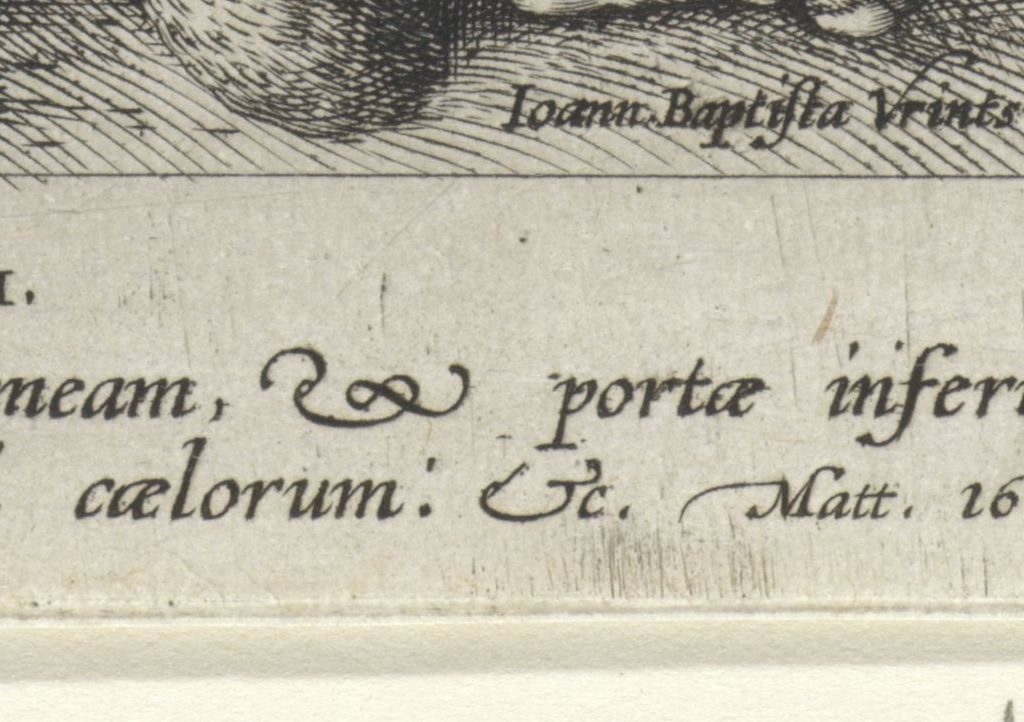 Ioann. Baptiſta Vrints
I.
meam, & portæ inferi
cælorum: &c. Matt. 16